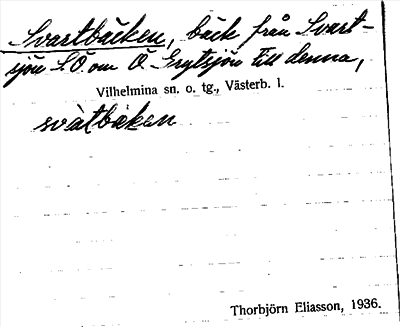 Svartbäcken, bäck från Svart-
sjön S.Ö. om Ö. Grytsjön till denna,
Vilhelmina sn. o. tg., Västerb. l.
svàtbäkən
Thorbjörn Eliasson, 1936.